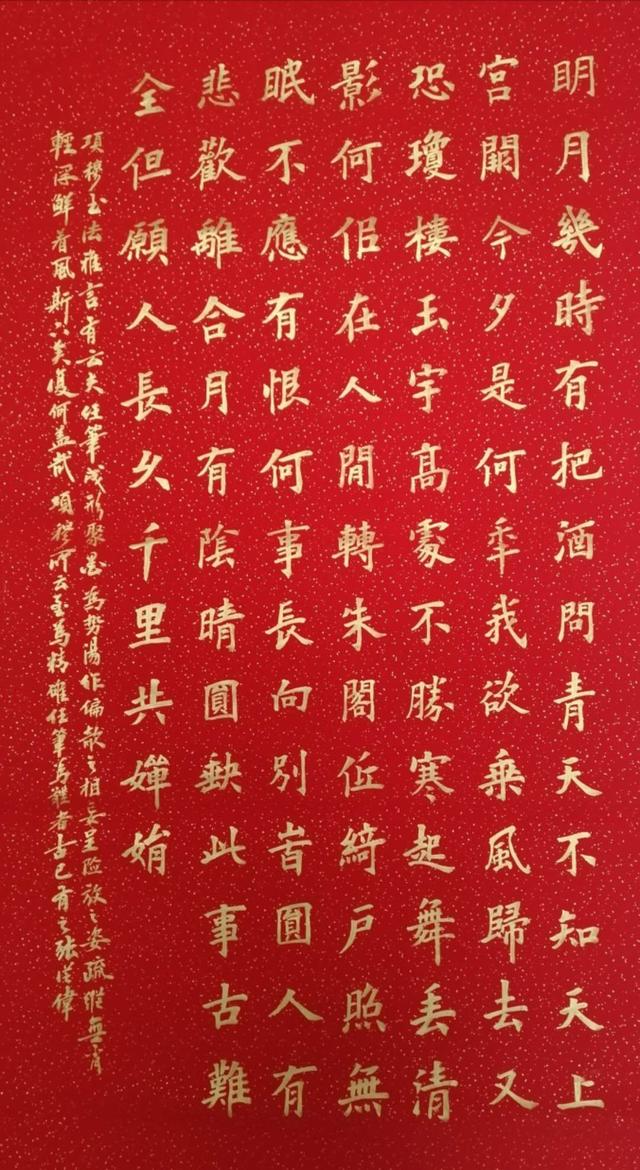 明月幾時有把酒問青天不知天上
宮闕今夕是何秊我欲乘風歸去又
恐瓊樓玉宇高處不勝寒起舞弄清
影何佀在人閒轉朱閣低綺戶照無
眠不應有恨何事長向別旹圓人有
悲歡離合月有陰晴圓缺此事古難
全但願人長久千里共嬋娟
項穆書法雅言有云夫任筆成形聚墨為勢漫作偏欹之相妄呈險放之姿疏縱無
輕浮鮮著風斯下矣復何益哉項穆所云至為精確任筆為體者古已有之張偉